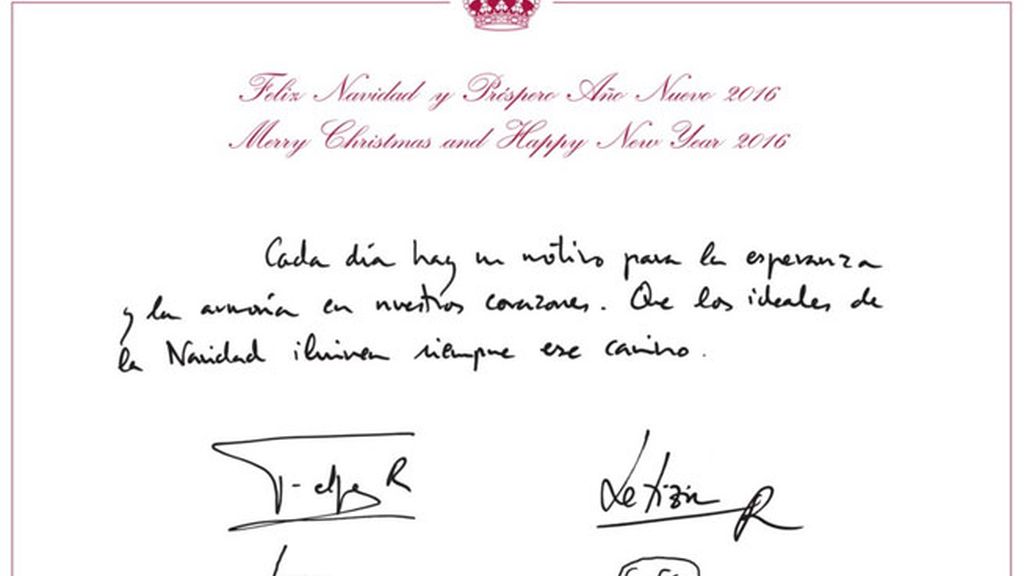 Feliz Navidad y Próspero Año Nuevo 2016
Merry Christmas and Happy New Year 2016
Cada día hay un motivo para la esperanza
y la armonía en nuestros corazones. Que los ideales de
la Navidad iluminen siempre ese camino.
Felipe R
Letizia R